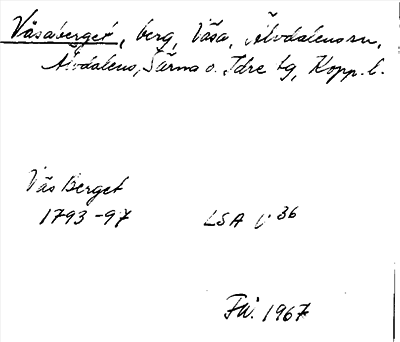 Våsaberget, berg, Våsa, Älvdalens sn,
Älvdalens, Särna o. Idre tg, Kopp. l.
Vås Berget
1793-97 LSA V 36
FW. 1967